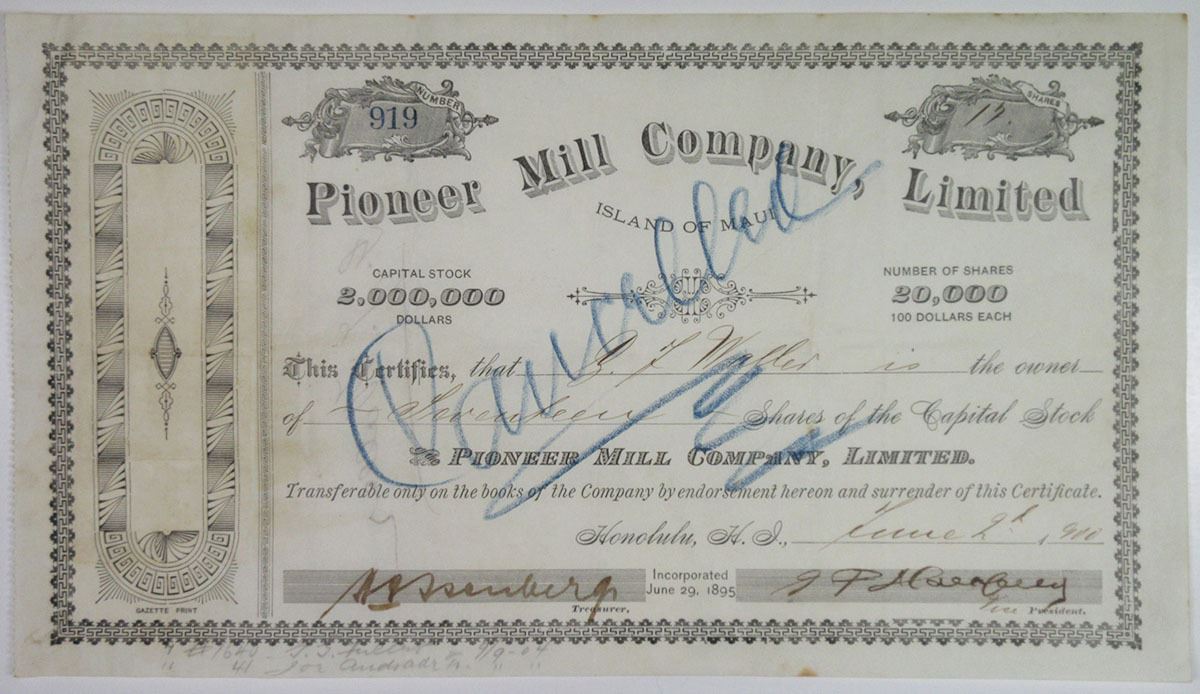 NUMBER
919
SHARES
17
Pioneer Mill Company, Limited
ISLAND OF MAUI
CAPITAL STOCK
2,000,000
DOLLARS
NUMBER OF SHARES
20,000
100 DOLLARS EACH
Cancelled
This Certifies, that is the owner
of Seventeen Shares of the Capital Stock
of the PIONEER MILL COMPANY, LIMITED.
Transferable only on the books of the Company by endorsement hereon and surrender of this Certificate.
Honolulu, H. I., June 2d, 1900
Incorporated
June 29, 1895
Treasurer.
Vice President.
GAZETTE PRINT